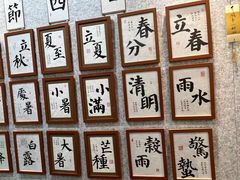 四
節
立春
春分
立夏
夏至
立秋
雨水
清明
小滿
小暑
處暑
驚蟄
穀雨
芒種
大暑
白露